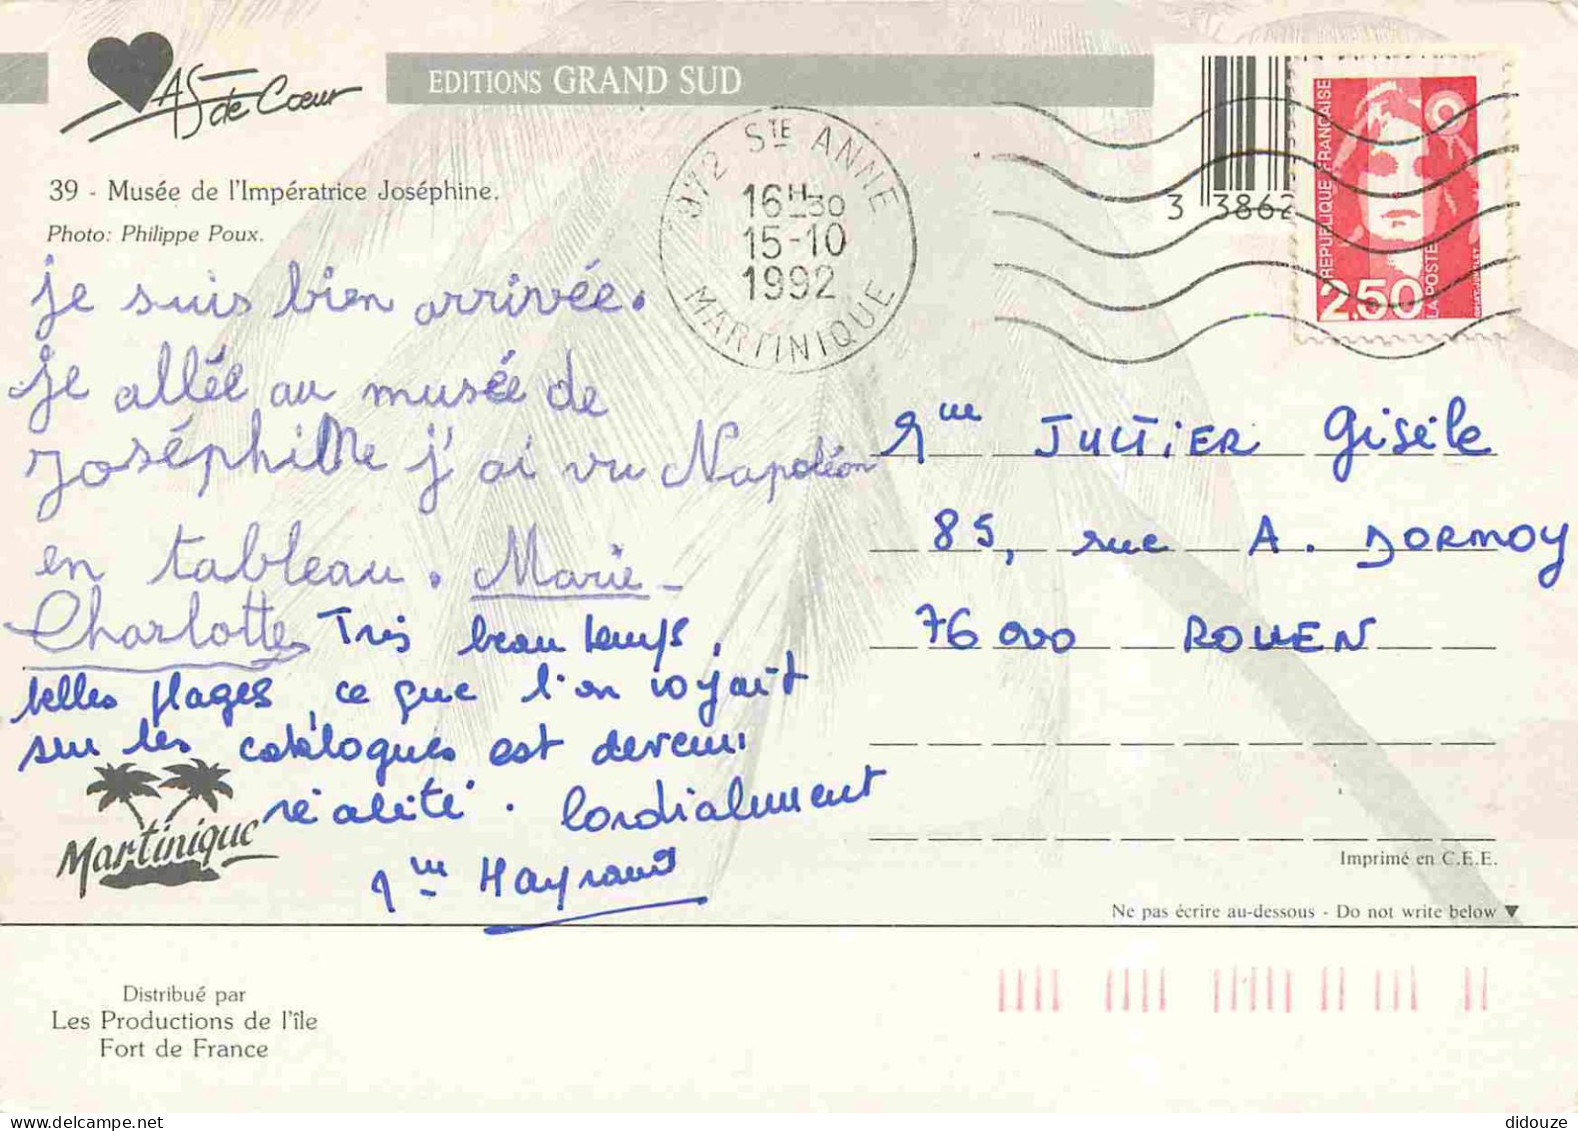 AS de Cœur
EDITIONS GRAND SUD
39 - Musée de l'Impératrice Joséphine.
Photo: Philippe Poux.
972 STE ANNE
16H30
15-10
1992
MARTINIQUE
3 3862
REPUBLIQUE FRANÇAISE
2,50
LA POSTE
je suis bien arrivée.
je allée au musée de
Joséphine j'ai vu Napoléon
en tableau. Marie-
Charlotte Très beau temps,
belles plages, ce que l'on voyait
sur les catalogues est devenu
réalité. Cordialement
Mme
Mme JULTIER Gisèle
85, rue A. DORMOY
76000 ROUEN
Martinique
Imprimé en C.E.E.
Ne pas écrire au-dessous - Do not write below ▼
Distribué par
Les Productions de l'île
Fort de France
didouze